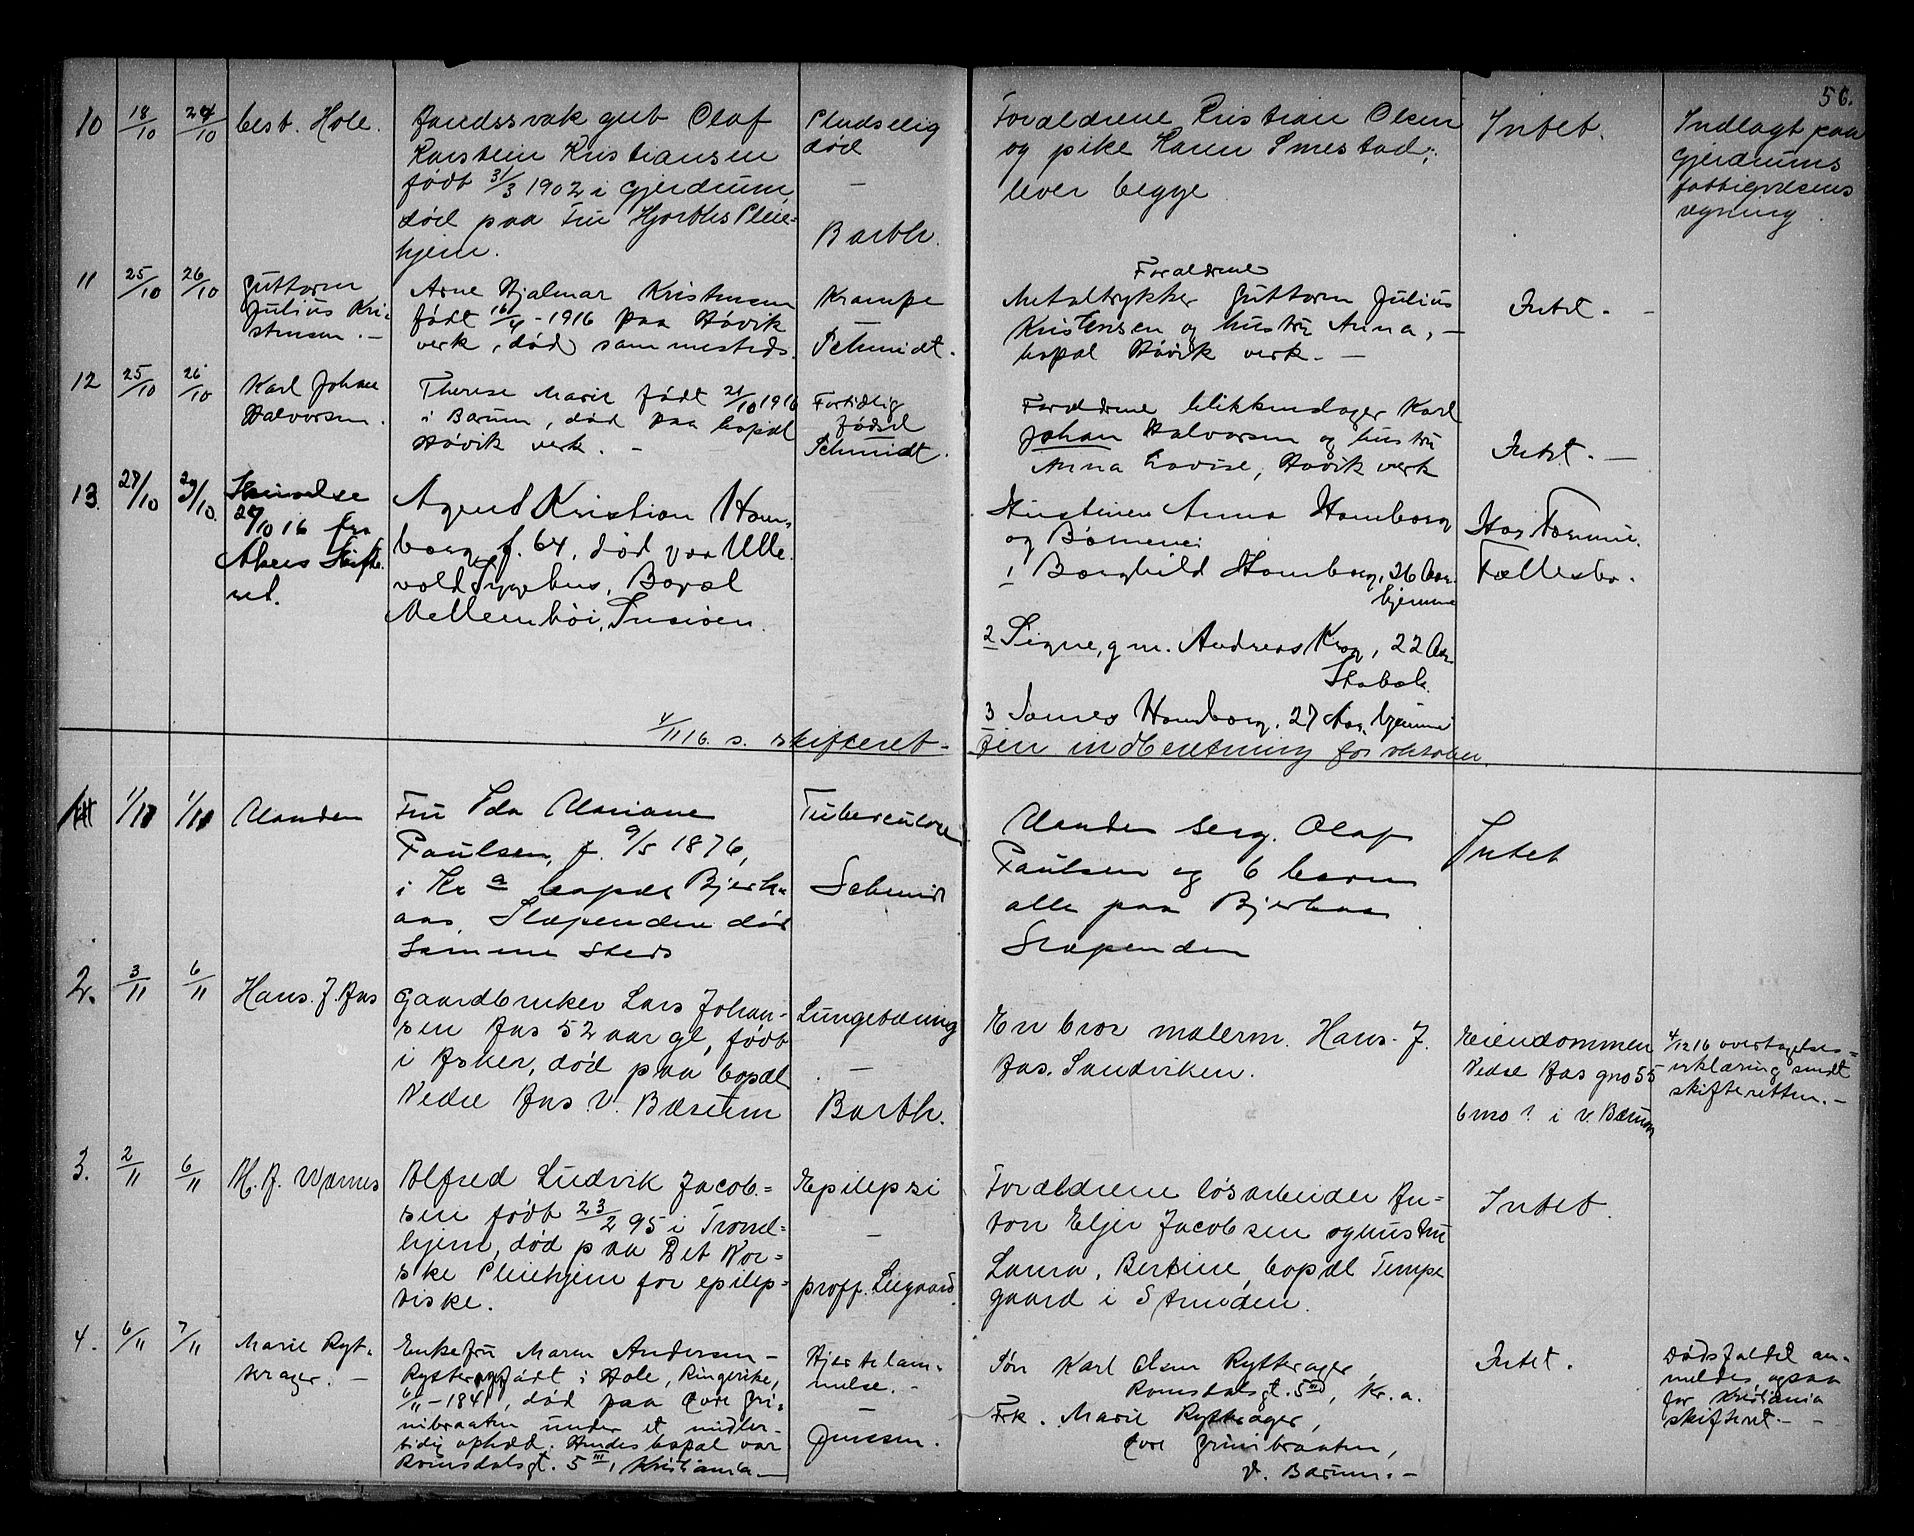 56.
10 18/10 24/10 best. Hole.
Aandssvak gut Olaf
Karstein Kristiansen
født 31/3 1902 i Gjerdrum,
død paa Fru Hjorths Pleie-
hjem.
Pludselig
død
—
Barth.
Forældrene Kristian Olsen
og pike Karen Smestad;
lever begge
Intet.
Indlagt paa
Gjerdrums
fattigvæsens
regning.
11 25/10 26/10 Guttorm
Julius Kri-
stensen. —
Arne Hjalmar Kristensen
født 16/4 - 1916 paa Høvik
verk, død sammesteds.
Krampe
Schmidt.
Forældrene
Metaltrykker Guttorm Julius
Kristensen og hustru Anna, —
bopæl Høvik verk. —
Intet. —
12 25/10 26/10 Karl Johan
Halvorsen.
Therese Marie født 21/10 1916
i Bærum, død paa bopæl
Høvik verk. —
Fortidlig
fødsel
Schmidt.
Forældrene blikkenslager Karl
Johan Halvorsen og hustru
Anna Lovise, Høvik verk
Intet. —
13. 27/10 29/10. Skrivelse
28/10 16 fra
Akers Skifte-
ret.
Agent Kristian Hom-
borg, f. 64, død paa Ulle-
vold Sygehus, Bopæl
Mellembøi, Snarøen.
Hustruen Anna Homborg
og Børnene:
1 Borghild Homborg, 26 Aar.
hjemme
2 Signe, g. m. Andreas Krog, 22 Aar.
Stabæk.
3 James Homborg, 27 Aar, hjemme
Hos Formue.
Fællesbo.
4/11 16. s. skifteret- fin indberetning for oktober.
1 1/11 1/11 Manden
Fru Ida Mariane
Paulsen, f. 9/5 1876,
i Kr a bopæl Bjerk-
aas Slæpenden død
samme steds
Tuberculose
Schmidt
Manden serg. Olaf
Paulsen og 6 barn
alle paa Bjerkaas
Slæpenden
Intet
2. 3/11 6/11 Hans. J. Aas
Gaardbruker Lars Johan-
sen Aas 52 aar gl, født
i Asker, død paa bopæl
Nedre Aas V. Bærum
Lungebetænd
—
Barth.
En bror malerm. Hans. J.
Aas. Sandviken.
Eiendommen
Nedre Aas gno 55
bno ? i v. Bærum
4/12 16 overtagelses-
erklæring sendt
skifteretten. —
3. 2/11 6/11 M. A. Wærnes
Alfred Ludvik Jacob-
sen født 23/2 95 i Trond-
hjem, død paa Det Nor-
ske Pleiehjem for epilep-
tiske.
Epilepsi
—
proff. Leegaard.
Forældrene løsarbeider An-
ton Eljer Jacobsen og hustru
Laura, Bertine, bopæl Tempe
gaard i Strinden.
Intet.
4. 6/11 7/11 Marie Ryt-
terager. —
Enkefru Maren Andersen —
Rytterager født i Hole, Ringerike,
6/11 - 1841, død paa Øvre Gri-
nibraaten under et midler-
tidig ophold. Hendes bopæl var
Romsdalsgt. 5 III, Kristiania —
Hjertelam-
melse. —
—
Jenssen.
Søn Karl Olsen Rytterager,
Romsdalsgt. 5 III, Kr. a.
Frk. Marie Rytterager,
Øvre Grinibraaten,
V. Bærum. —
Intet.
Dødsfaldet an-
meldes ogsaa
for Kristiania
skifteret. —